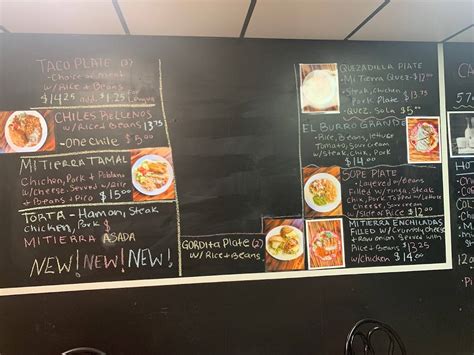 TACO PLATE (3)
- Choice of meat
w/ Rice + Beans
$14.25 add $1.25 for
Lengua
CHILES RELLENOS
w/ Rice + Beans 13.75
- One Chile $5.00
MI TIERRA TAMAL
Chicken, Pork + Poblano
w/ Cheese - Served w/ Rice
+ Beans + Pico $15.00
TORTA - Hamon, Steak
Chicken, Pork $
MI TIERRA ASADA
NEW! NEW! NEW!
GORDITA PLATE (2)
w/ Rice + Beans
QUEZADILLA PLATE
- Mi Tierra Quez - $12.00
- Steak,
Chicken, $
Pork Plate
- Quez. Sola $5.00
EL BURRO GRANDE
- Rice, Beans, lettuce
Tomato, Sour Cream
w/ Steak, Chik, Pork
$14.00
SOPE PLATE
- Layered w/ Beans
Filled w/ Tinga, Steak
Chik, Pork Topped w/ Lettuce
Cheese, Sour Cream
w/ Side of Rice $12.00
MI TIERRA ENCHILADAS
Filled w/ Crumbly Cheese
+ Raw Onion Served with
Rice + Beans $13.25
w/ Chicken $14.00
CA
57
HOT
COL